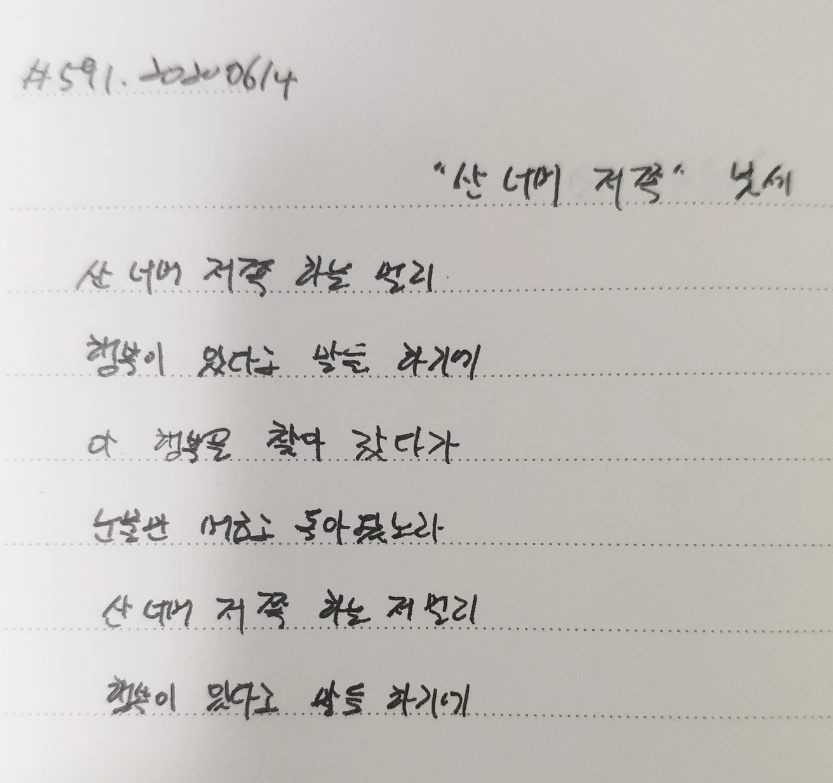 #591. 20200614
"산 너머 저쪽" 붓세
산 너머 저쪽 하늘 멀리
행복이 있다고 말들 하기에
아 행복을 찾아 갔다가
눈물만 머금고 돌아왔노라
산 너머 저쪽 하늘 저멀리
행복이 있다고 말들 하기에